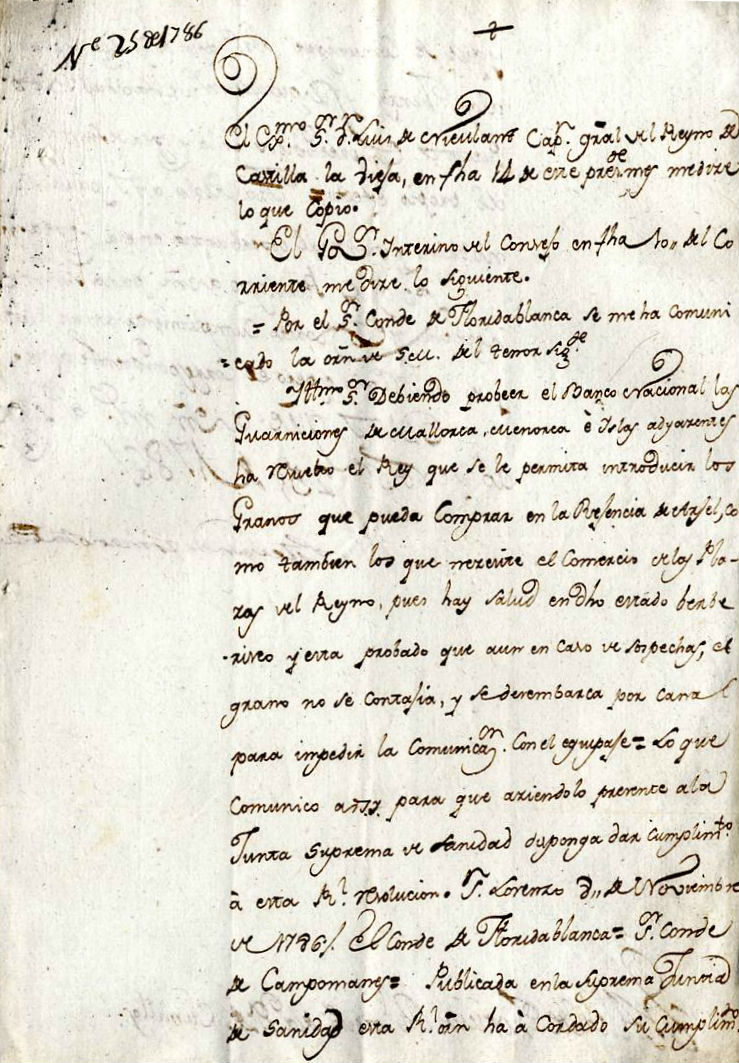 Nº 25 de 1786
El Exmo. Sr. Dn. Luis de Cap. gral del Reyno de
Castilla la Vieja, en fha 14 de este preste. mes me dize
lo que Copio.
El Sr. Interino del Consejo en fha 10,, del Co
rriente me dize lo siguiente.
= Por el Sr. Conde de Floridablanca se me ha Comuni
=cado la orn de S.M. del tenor sigte.
Illmo. Sr. Debiendo probeer el Banco Nacional las
Guarniciones de Mallorca, Menorca è Islas adyacentes
ha resuelto el Rey que se le permita introducir los
Granos que pueda Comprar en la Rejencia de Arjel, Co
mo tambien los que necesite el Comercio de las Pla-
zas del Reyno, pues hay salud en dho estado berbe
-risco y esta probado que aun en Caso de sospechas, el
grano no se Contajia, y se desembarca por canal
para impedir la Comunicaon. Con el equipaje = Lo que
Comunico a para que aziendolo presente a la
Junta Suprema de Sanidad disponga dar Cumplimto.
à esta Rl. resolucion. Sn. Lorenzo 3,, de Noviembre
de 1786/. El Conde de Floridablanca = Sr. Conde
de Campomanes = Publicada en la Suprema Junta
de Sanidad esta Rl. orn ha àCordado su Cumplimto.